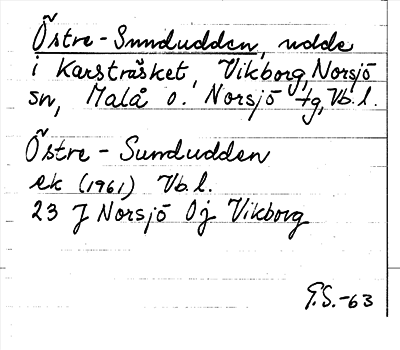 Östre-Sundudden, udde
i Karsträsket, Vikborg, Norsjö
sn, Malå o. Norsjö tg, Vb.l.
Östre - Sundudden
ek (1961) Vb.l.
23 J Norsjö 0j Vikborg
G.S.-63